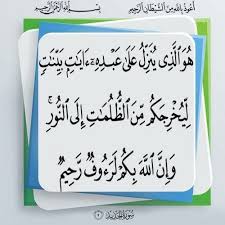 أعوذ بالله من الشيطان الرجيم
بسم الله الرحمن الرحيم
هُوَ ٱلَّذِى يُنَزِّلُ عَلَىٰ عَبْدِهِۦٓ ءَايَـٰتِۭ بَيِّنَـٰتٍ
لِّيُخْرِجَكُم مِّنَ ٱلظُّلُمَـٰتِ إِلَى ٱلنُّورِ ۚ
وَإِنَّ ٱللَّهَ بِكُمْ لَرَءُوفٌ رَّحِيمٌ
سورة الحديد